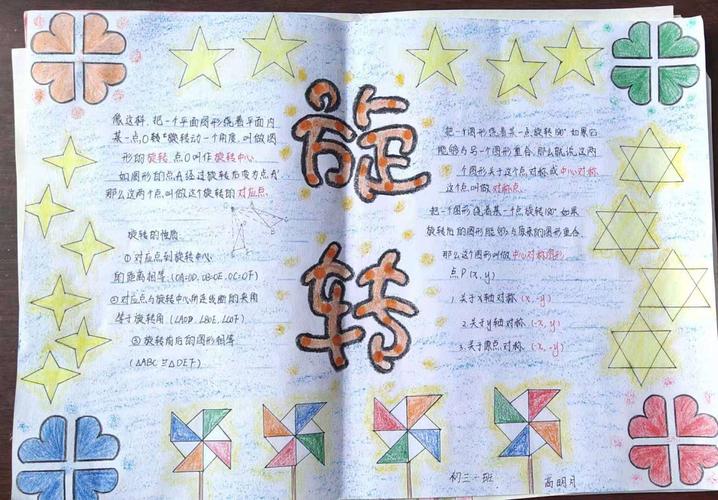 旋
转
像这样,把一个平面图形绕着平面内
某一点O转动一个角度,叫做图
形的旋转.点O叫作旋转中心.
如图形的点A经过旋转后变为点A'
那么这两个点叫做这个旋转的对应点.
旋转的性质
①对应点到旋转中心
的距离相等.(OA=OD.OB=OE.OC=OF)
②对应点与旋转中心所连线段的夹角
等于旋转角(∠AOD ∠BOE.∠COF)
③旋转前后的图形相等
(△ABC≌△DEF)
把一个图形绕着某一点旋转180°如果它
能够与另一个图形重合.那么就说.这两
个图形关于这个点对称或中心对称
这个点叫做对称点.
把一个图形绕着某一个点旋转180°如果
旋转后的图形能够与原来的图形重合.
那么这个图形叫做中心对称图形.
点P(x,y)
1.关于x轴对称(x,-y)
2.关于y轴对称(-x,y)
3.关于原点对称(-x,-y)
初三一班 高明月